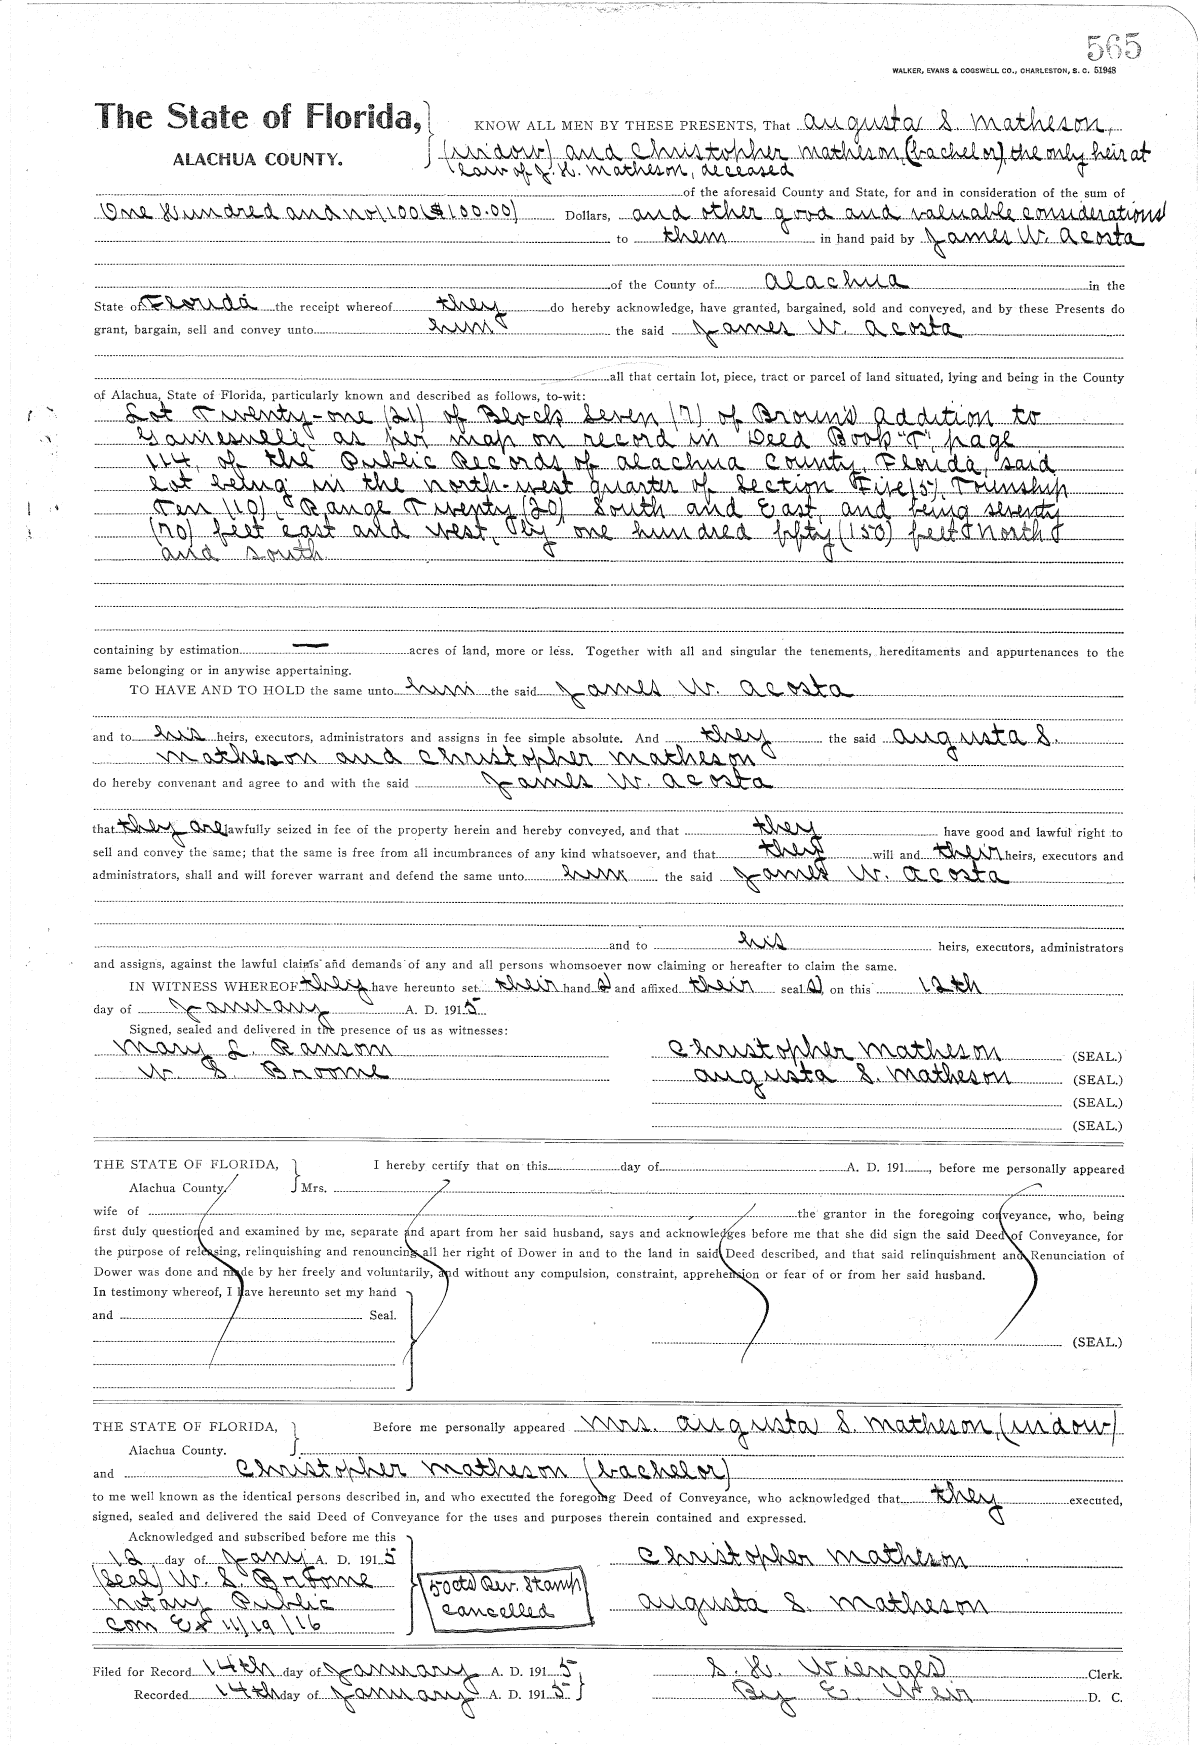 565
WALKER, EVANS & COGSWELL CO., CHARLESTON, S. C. 51948
The State of Florida,
ALACHUA COUNTY.
KNOW ALL MEN BY THESE PRESENTS, That Augusta S. Matheson,
(widow) and Christopher Matheson, (bachelor), the only heir at
law of J. H. Matheson, deceased
of the aforesaid County and State, for and in consideration of the sum of
One Hundred and no/100 ($100.00) Dollars, and other good and valuable considerations
to them in hand paid by James W. Acosta
of the County of Alachua in the
State of Florida the receipt whereof they do hereby acknowledge, have granted, bargained, sold and conveyed, and by these Presents do
grant, bargain, sell and convey unto him the said James W. Acosta
all that certain lot, piece, tract or parcel of land situated, lying and being in the County
of Alachua, State of Florida, particularly known and described as follows, to-wit:
Lot Twenty-one (21) of Block Seven (7) of Brown's Addition to
Gainesville as per map on record in Deed Book "T", page
114, of the Public Records of Alachua County, Florida, said
lot being in the north-west quarter of Section Five (5), Township
Ten (10), Range Twenty (20) South and East, and being seventy
(70) feet east and west, by one hundred fifty (150) feet North
and south.
containing by estimation — acres of land, more or less. Together with all and singular the tenements, hereditaments and appurtenances to the
same belonging or in anywise appertaining.
TO HAVE AND TO HOLD the same unto him the said James W. Acosta
and to his heirs, executors, administrators and assigns in fee simple absolute. And they the said Augusta S.
Matheson and Christopher Matheson
do hereby convenant and agree to and with the said James W. Acosta
that they are lawfully seized in fee of the property herein and hereby conveyed, and that they have good and lawful right to
sell and convey the same; that the same is free from all incumbrances of any kind whatsoever, and that they will and their heirs, executors and
administrators, shall and will forever warrant and defend the same unto him the said James W. Acosta
and to his heirs, executors, administrators
and assigns, against the lawful claims and demands of any and all persons whomsoever now claiming or hereafter to claim the same.
IN WITNESS WHEREOF they have hereunto set their hand s and affixed their seal s, on this 12th
day of January A. D. 1915.
Signed, sealed and delivered in the presence of us as witnesses:
Mary L. Ransom
W. S. Broome
Christopher Matheson (SEAL.)
Augusta S. Matheson (SEAL.)
(SEAL.)
(SEAL.)
THE STATE OF FLORIDA,
Alachua County.
I hereby certify that on this day of A. D. 191 , before me personally appeared
Mrs.
wife of the grantor in the foregoing conveyance, who, being
first duly questioned and examined by me, separate and apart from her said husband, says and acknowledges before me that she did sign the said Deed of Conveyance, for
the purpose of releasing, relinquishing and renouncing all her right of Dower in and to the land in said Deed described, and that said relinquishment and Renunciation of
Dower was done and made by her freely and voluntarily, and without any compulsion, constraint, apprehension or fear of or from her said husband.
In testimony whereof, I have hereunto set my hand
and Seal.
(SEAL.)
THE STATE OF FLORIDA,
Alachua County.
Before me personally appeared Mrs. Augusta S. Matheson, (widow)
and Christopher Matheson (bachelor)
to me well known as the identical persons described in, and who executed the foregoing Deed of Conveyance, who acknowledged that they executed,
signed, sealed and delivered the said Deed of Conveyance for the uses and purposes therein contained and expressed.
Acknowledged and subscribed before me this
12 day of Jany A. D. 1915
(Seal) W. S. Broome
Notary Public
Com Ex 11/19/16
50cts Rev. Stamp
cancelled
Christopher Matheson
Augusta S. Matheson
Filed for Record 14th day of January A. D. 1915
Recorded 14th day of January A. D. 1915
S. H. Wienges Clerk.
By E. Weir D. C.